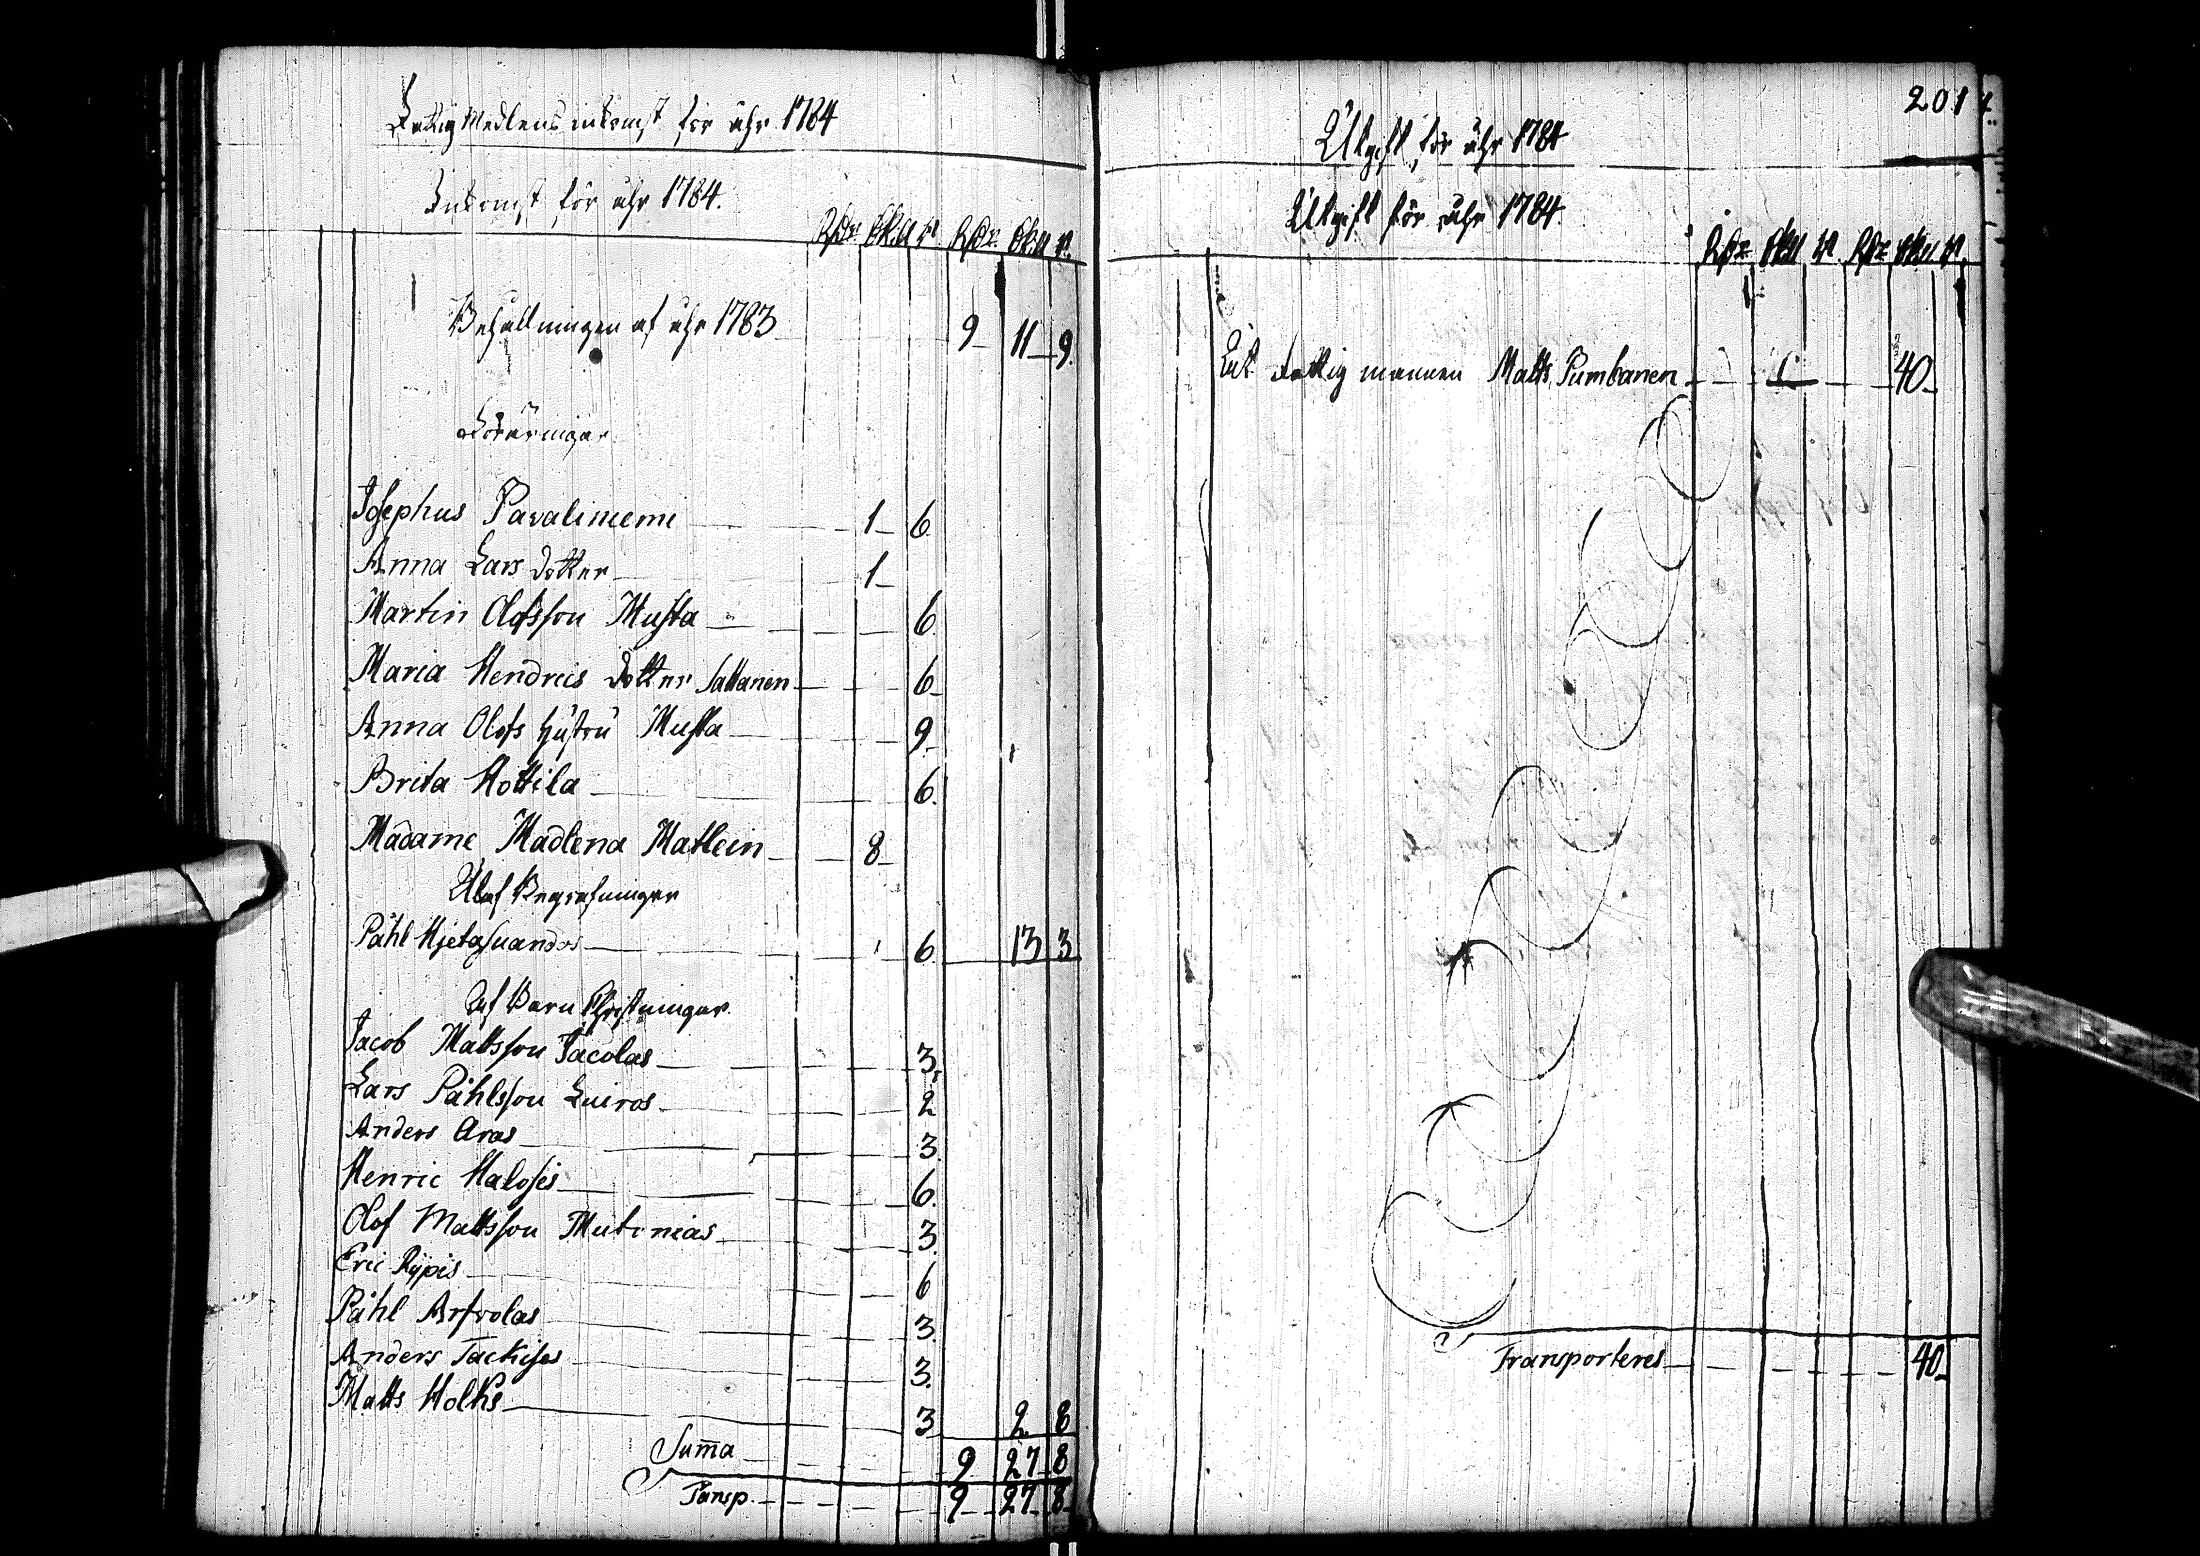 Fattig Medlens inkomst för åhr 1784
Inkomst för åhr 1784.
Rdr Skill rst Rdr Skill rst
Behållningen af åhr 1783 9 11 9.
Föräringar
Josephus Pavaliniemi 1 6.
Anna Lars dotter 1
Martin Olofsson Musta 6.
Maria Hendrics dotter Sattanen 6
Anna Olofs Hustru Musta 9
Brita Kottila 6.
Madame Madlena Matlein 8
Utaf Begrafningar
Påhl Hjetasuandos 6. 13 3
Af Barn Christningar.
Jacob Mattsson Jacolas 3,
Lars Påhlsson Luiros 2
Anders Aras 3.
Henric Halosis 6.
Olof Mattsson Mutenias 3.
Eric Rÿpis 6
Påhl Arfvolas 3.
Anders Tackises 3.
Matts Holks 3 2 8
Summa 9 27 8
Transp. 9 27 8
201
Utgift för åhr 1784
Utgift för åhr 1784.
Rdr Skill rst Rdr Skill rst
fattig mannen Matts Pumbanen 40
Transporteres 40